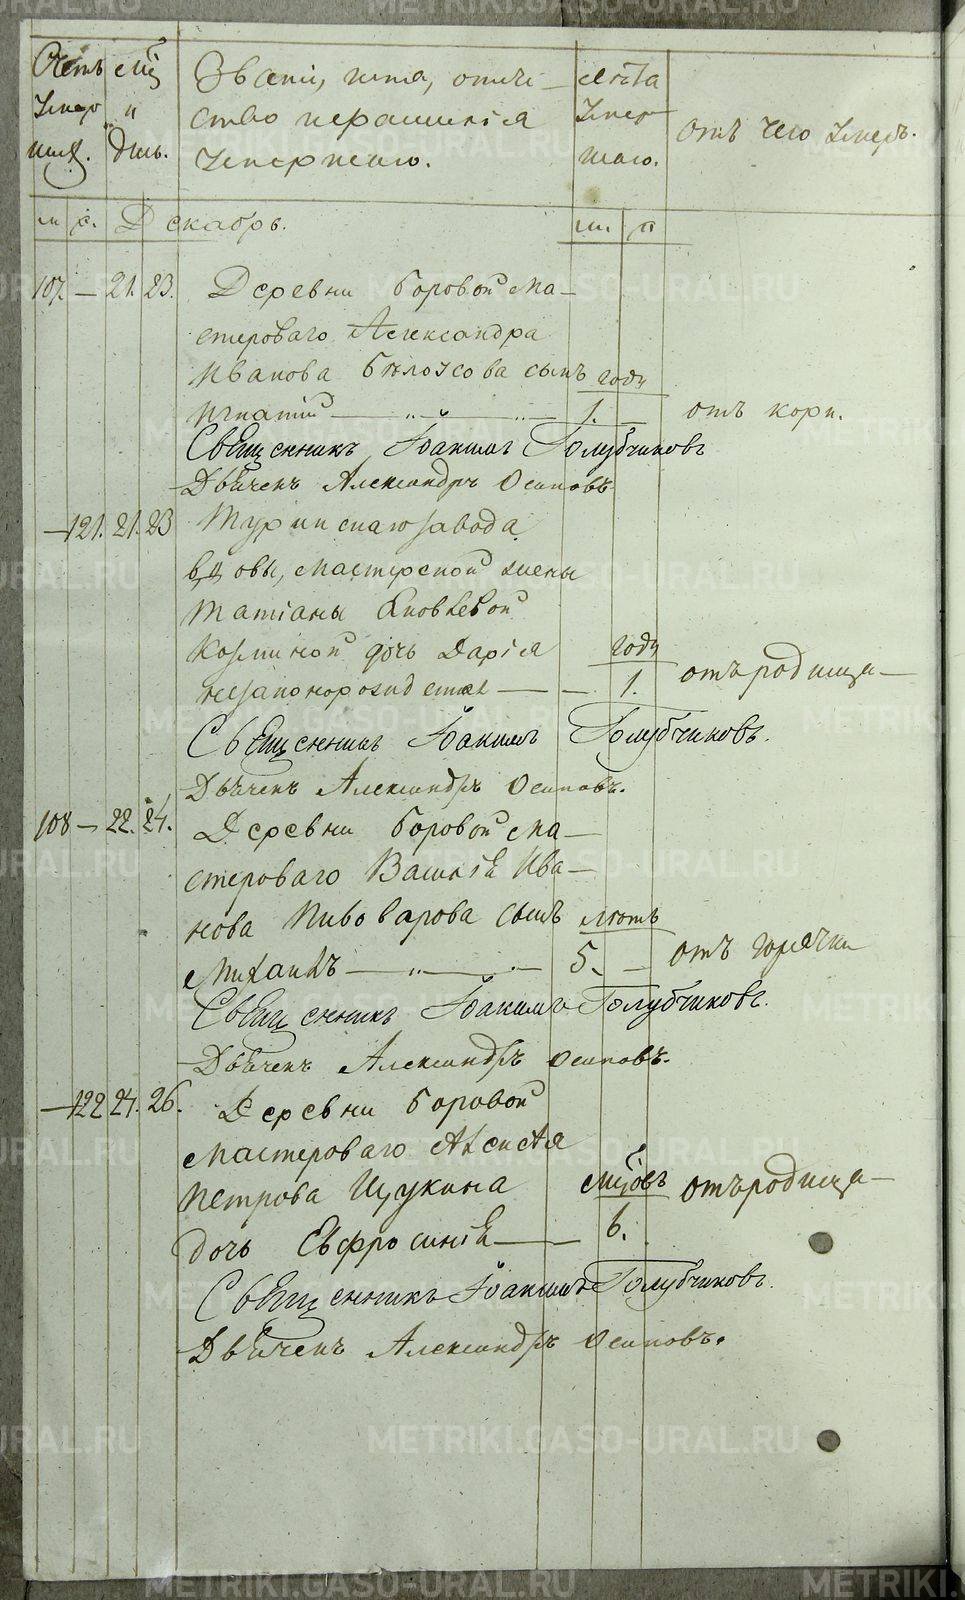 Счетъ умер шихъ.
Мцъ и день.
Званіе, имя, отче-
ство и фамилія
умершаго.
Лѣта умер шаго.
отъ чего умеръ.
м. ж. Декабрь. м. ж.
107. — 21. 23. Деревни Боровой ма-
стероваго Александра
Иванова Бѣлоусова сынъ году
Игнатій 1. отъ кори.
Священникъ Іоакимъ Голубчиковъ
Дьячекъ Александръ Осиповъ
— 121. 21. 23 Туринскаго завода
вдовы, мастерской жены
Татіаны Яковлевой
Козминой дочь Дарія году
незаконорожденная — — 1. отъ родимца —
Священникъ Іоакимъ Голубчиковъ.
Дьячекъ Александръ Осиповъ.
108 — 22. 24. Деревни Боровой ма-
стероваго Василія Ива-
нова Пивоварова сынъ лѣтъ
Михаилъ 5. — отъ горячки
Священникъ Іоакимъ Голубчиковъ.
Дьячекъ Александръ Осиповъ.
— 122 24. 26. Деревни Боровой
мастероваго Алексѣя
Петрова Щукина мцовъ отъ родимца —
дочь Евфросинія — 6.
Священникъ Іоакимъ Голубчиковъ.
Дьячекъ Александръ Осиповъ.
METRIKI.GASO-URAL.RU